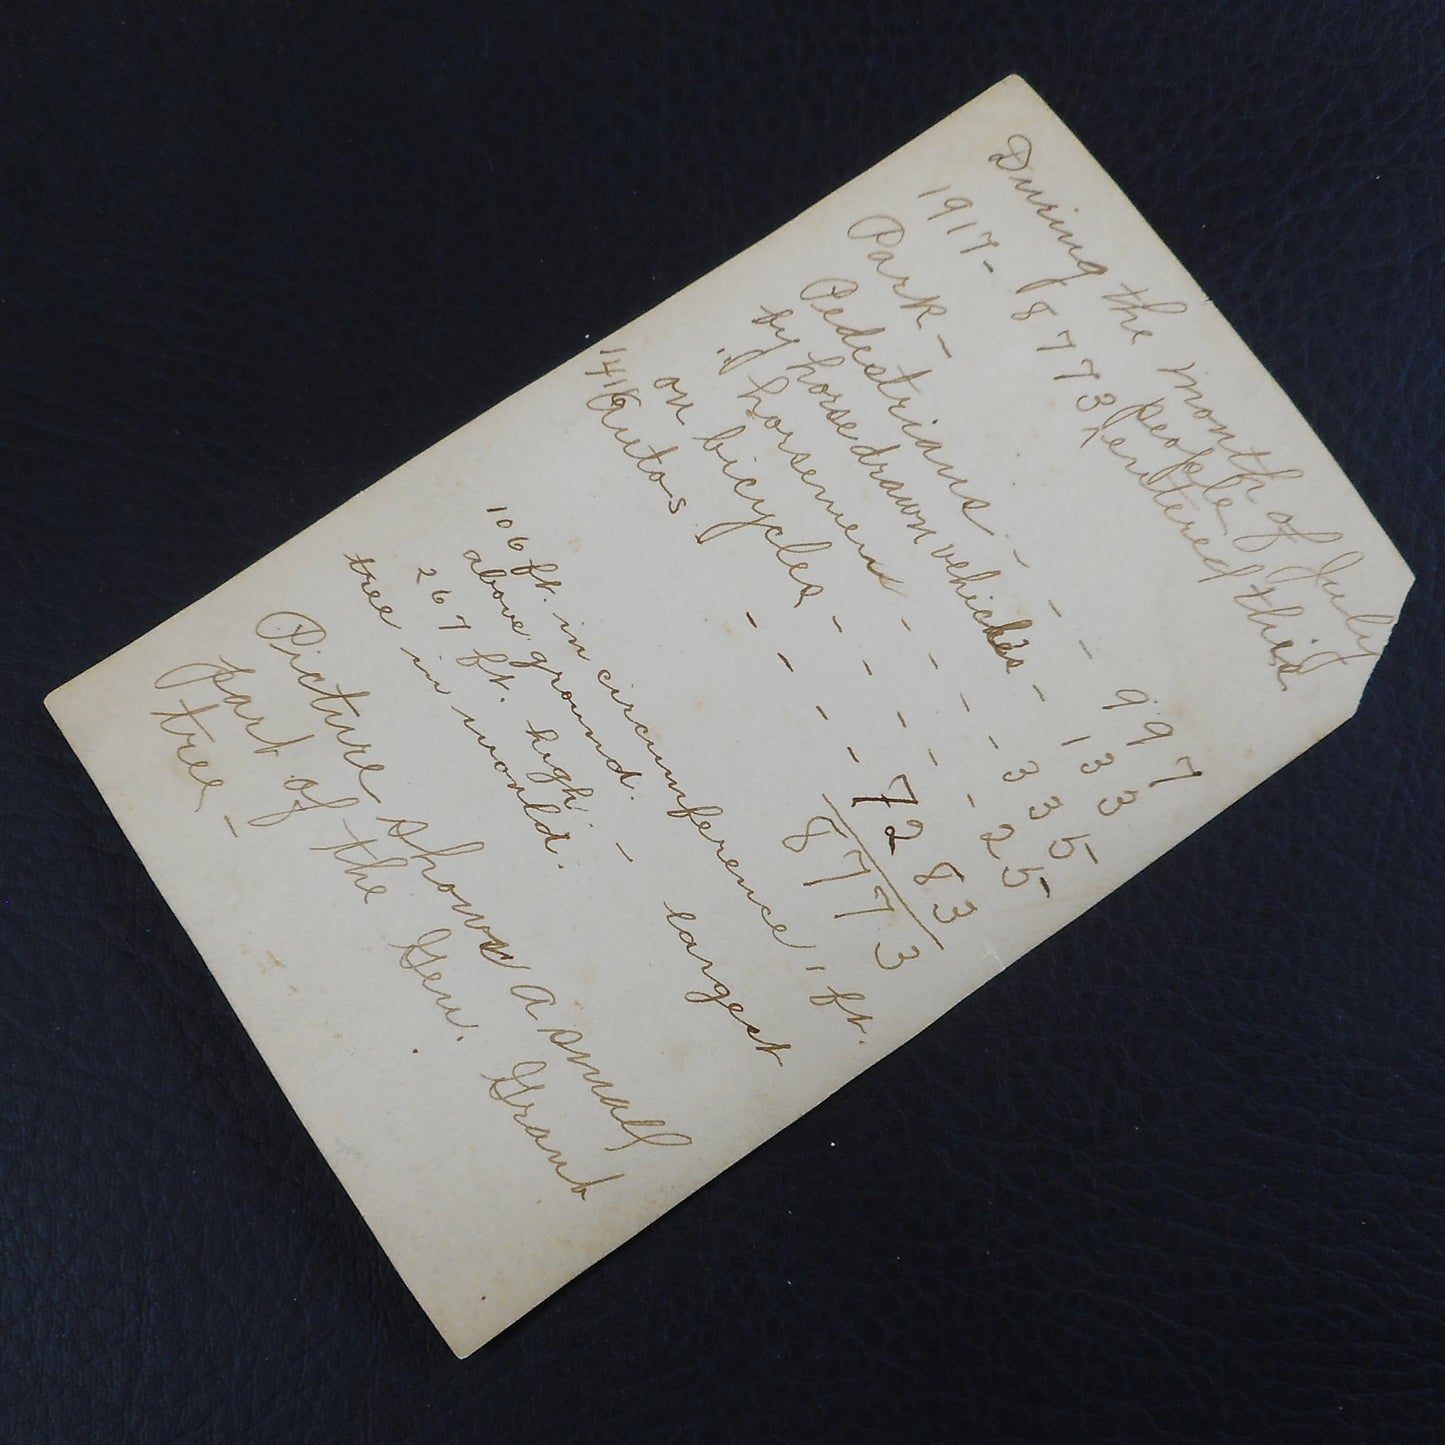 During the month of July
1917 - 8773 people entered this
Park -
Pedestrians - - - 997
by horsedrawn vehicles - 133
" horsemen - - - - 335
on bicycles - - - - - 25
1416 Autos - - - - 7283
8773
106 ft. in circumference, ft.
above ground.
267 ft. high. - largest
tree in world.
Picture shows a small
part of the Gen. Grant
tree -